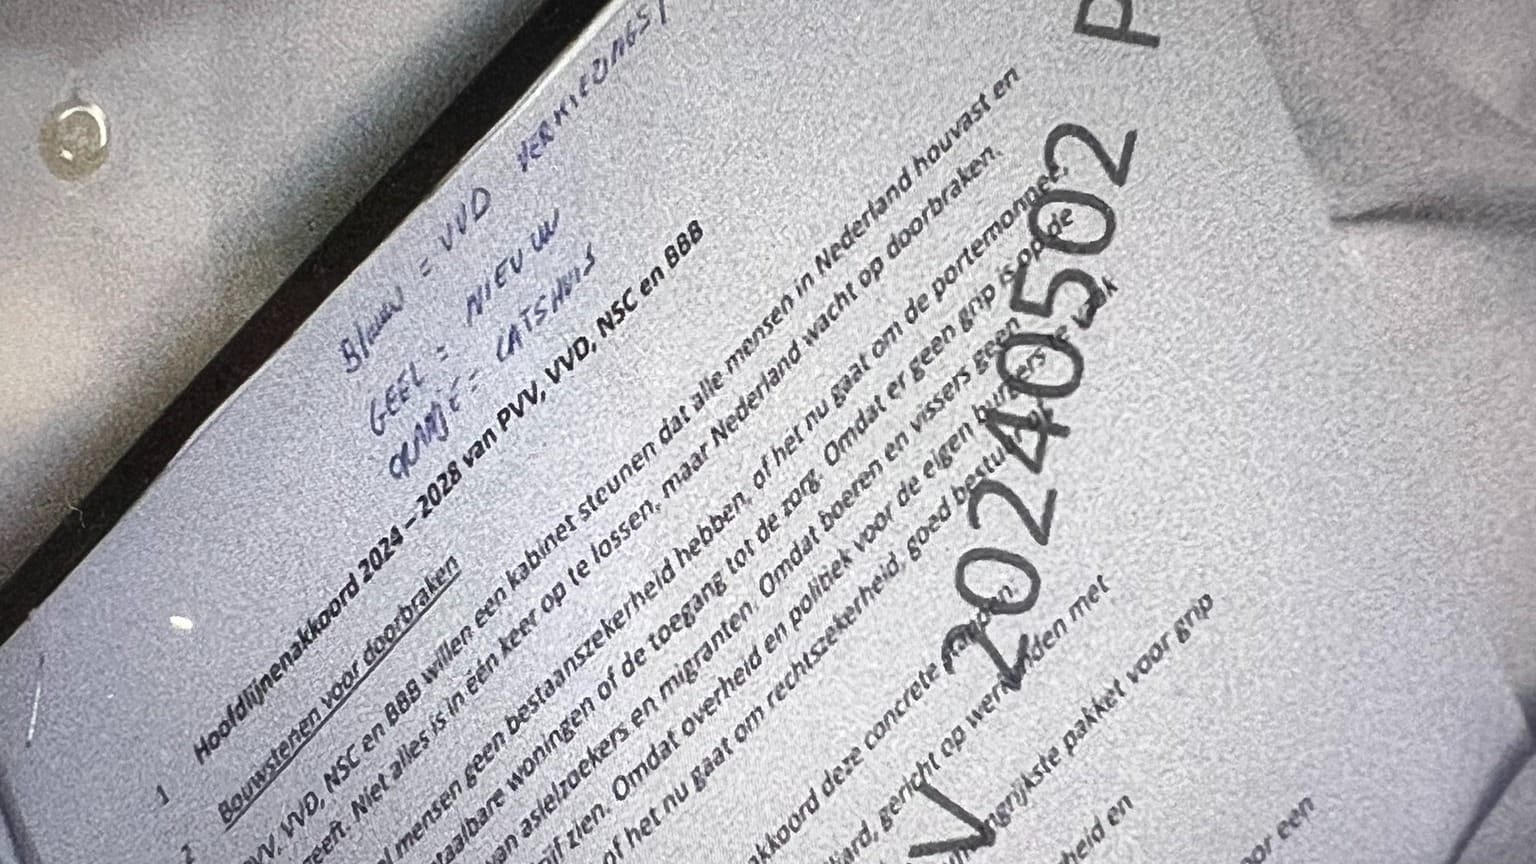 Blauw = VVD VERKIEZINGS
GEEL = NIEUW
ORANJE = CATSHUIS
1 Hoofdlijnenakkoord 2024 – 2028 van PVV, VVD, NSC en BBB
2 Bouwstenen voor doorbraken
VVD, NSC en BBB willen een kabinet steunen dat alle mensen in Nederland houvast en
Niet alles is in één keer op te lossen, maar Nederland wacht op doorbraken.
mensen geen bestaanszekerheid hebben, of het nu gaat om de portemonnee,
woningen of de toegang tot de zorg. Omdat er geen grip is op de
van asielzoekers en migranten. Omdat boeren en vissers geen
zien. Omdat overheid en politiek voor de eigen burgers te vaak
of het nu gaat om rechtszekerheid, goed bestuur
deze concrete plannen
gericht op werkenden met
pakket voor grip
en
een
V 20240502 P